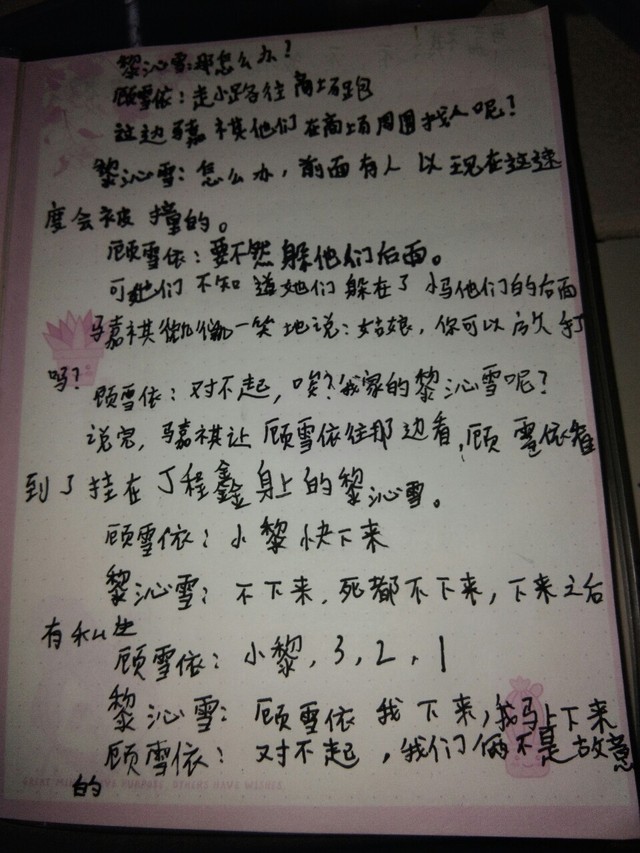 黎沁雪:那怎么办?
顾雪依:走小路往商场跑
这边马嘉祺他们在商场周围找人呢?
黎沁雪:怎么办,前面有人以现在这速
度会被撞的。
顾雪依:要不然躲他们后面。
可她们不知道她们躲在了小马他们的后面
马嘉祺微微一笑地说:姑娘,你可以放手
吗?
顾雪依:对不起,唉?我家的黎沁雪呢?
说完,马嘉祺让顾雪依往那边看,顾雪依看
到了挂在丁程鑫身上的黎沁雪。
顾雪依:小黎快下来
黎沁雪:不下来,死都不下来,下来之后
有
顾雪依:小黎,3,2,1
黎沁雪:顾雪依我下来,我马上下来
顾雪依:对不起,我们俩不是故意
的